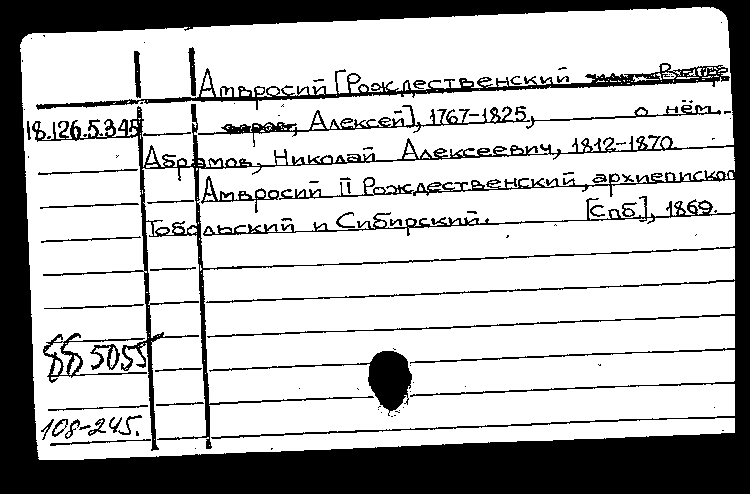 Амвросий [Рождественский
18.126.5.345 Алексей], 1767-1825, о нём.
Абрамов, Николай Алексеевич, 1812-1870
Амвросий II Рождественский, архиепископ
Тобольский и Сибирский. [Спб.], 1869.
5055
108-245.